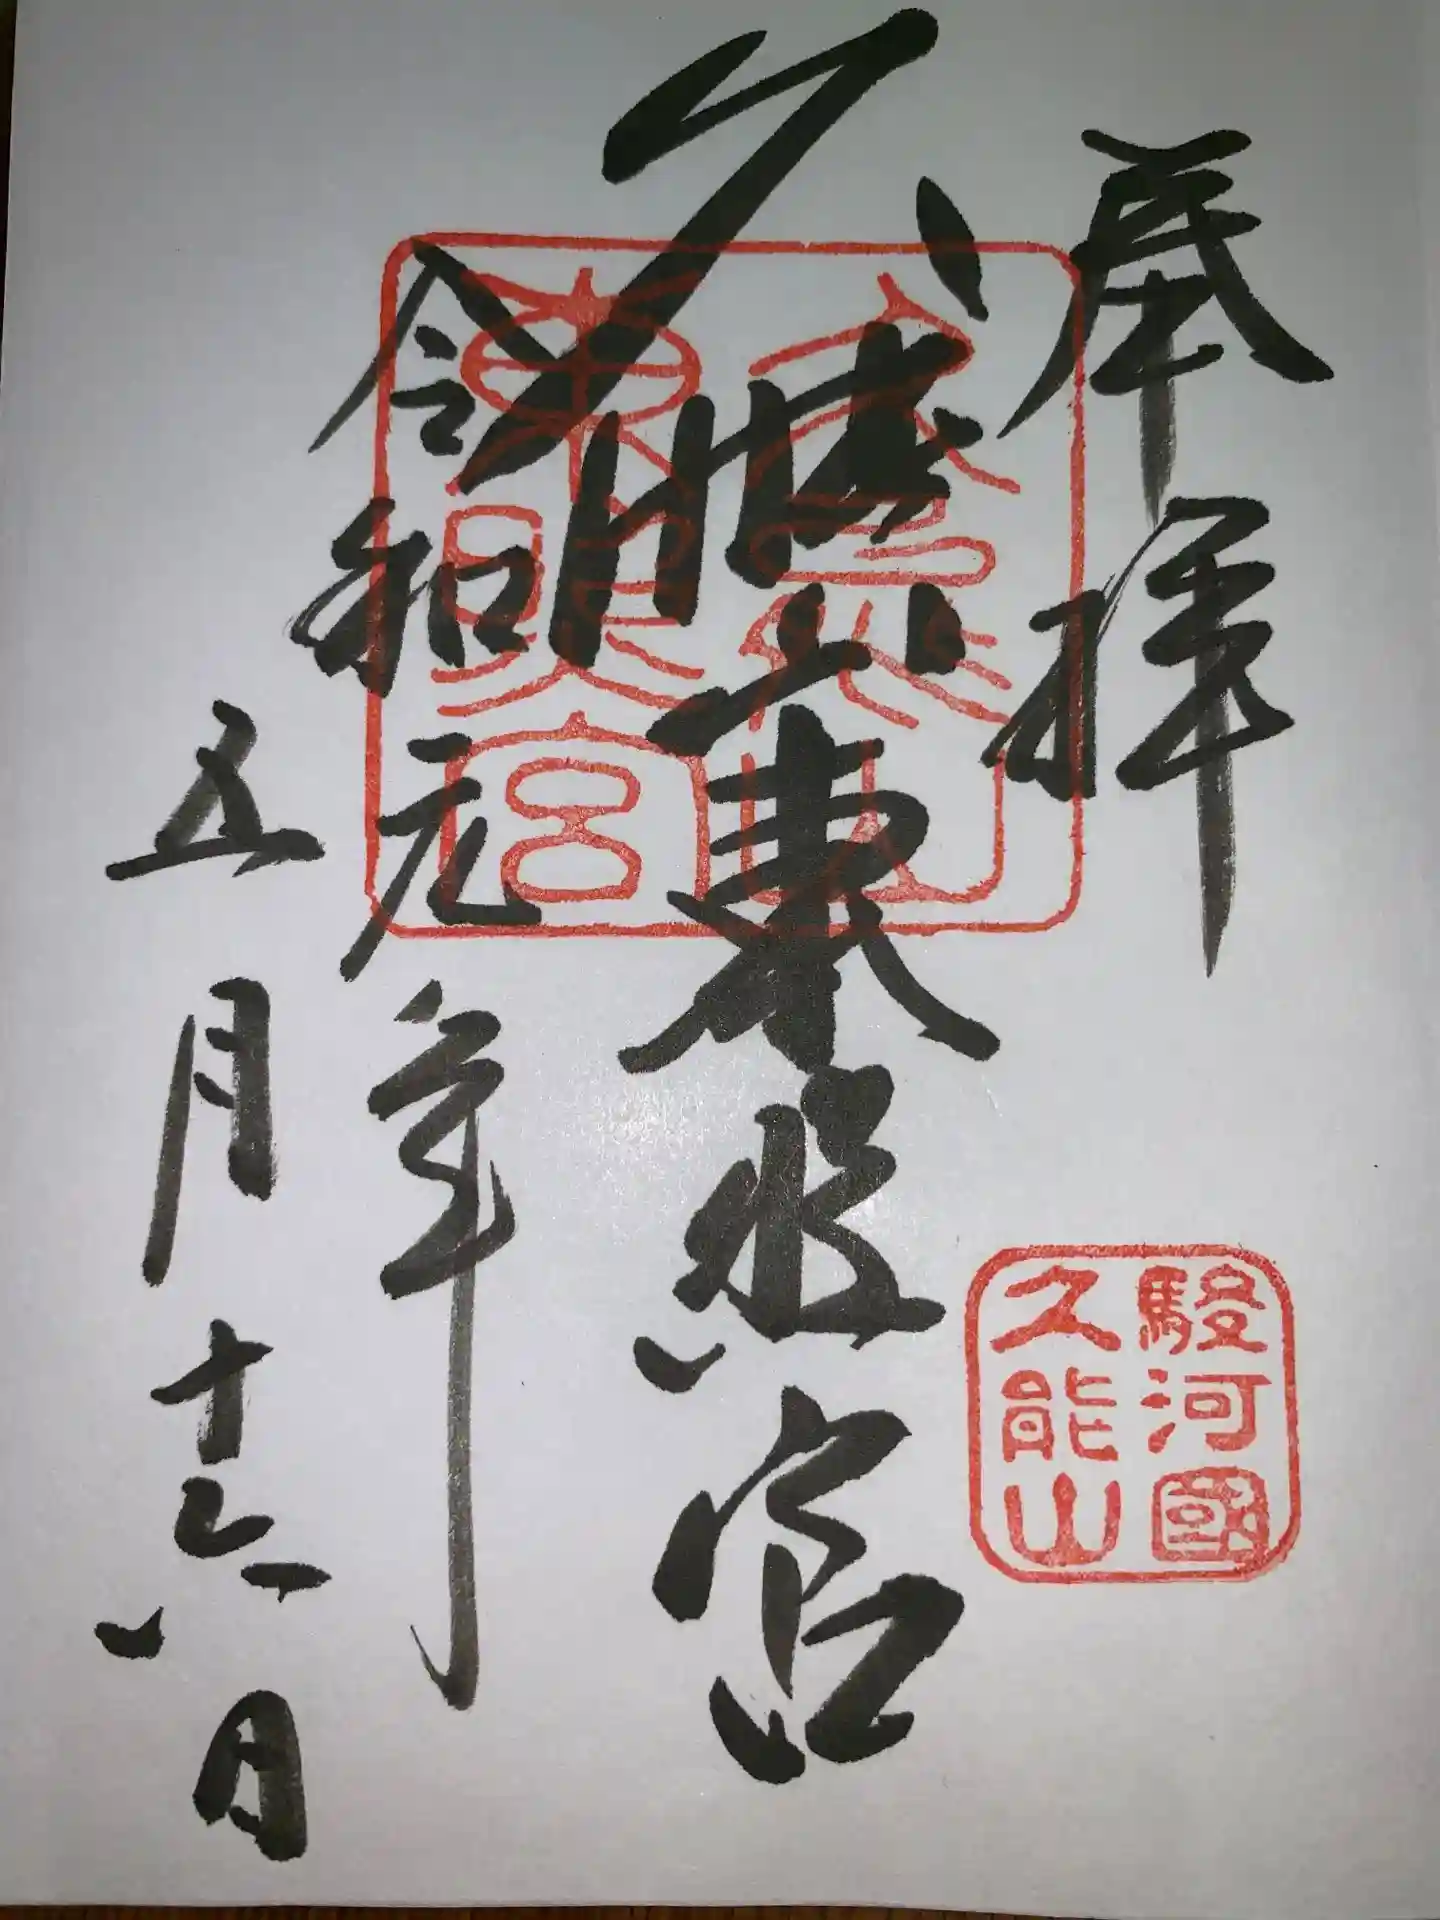 奉拝
久能山東照宮
令和元年
五月十六日
久能山
東照宮
駿河國
久能山